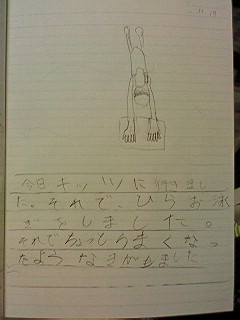 今日キッツに行きまし
た。それで、ひらお泳
ぎをしました。
それでちょっとうまくなっ
たような きがしました